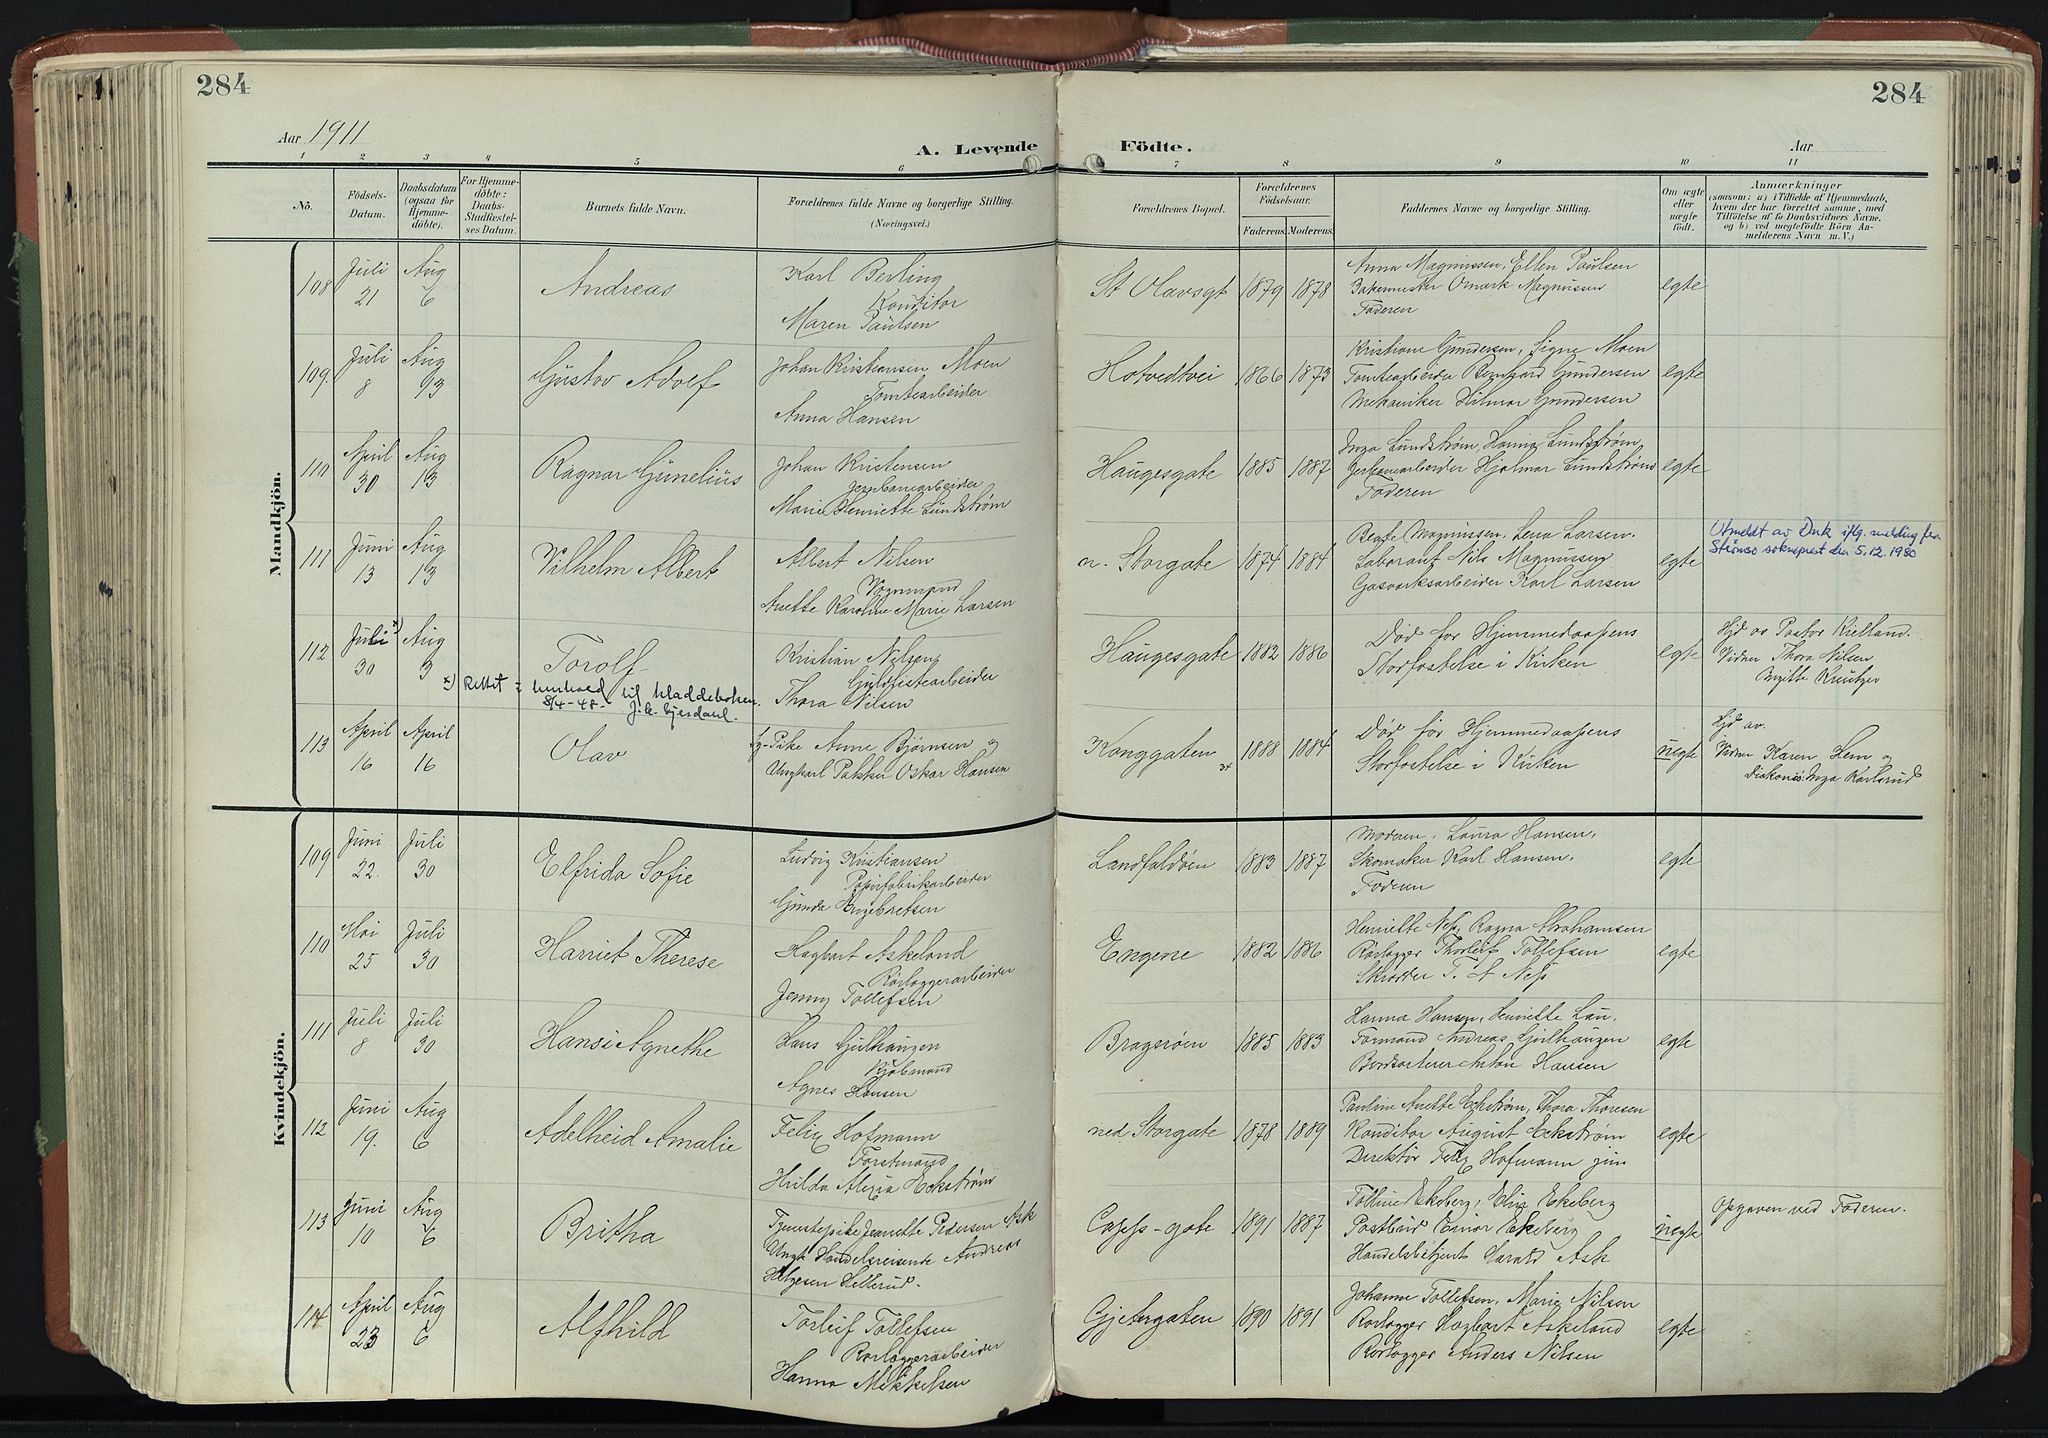 284
284
Aar 1911
A. Levende
Födte.
Aar
1 2 3 4 5 6 7 8 9 10 11
Nö.
Födsels-
Datum.
Daabsdatum
(ogsaa for
Hjemme-
döbte).
For Hjemme-
döbte:
Daabs-
Stadfæstel-
ses Datum.
Barnets fulde Navn.
Forældrenes fulde Navne og borgerlige Stilling.
(Næringsvei.)
Forældrenes Bopæl.
Forældrenes
Födselsaar.
Faderens. Moderens.
Faddernes Navne og borgerlige Stilling.
Om ægte
eller
uægte
födt.
Anmærkninger
(saasom: a) i Tilfælde af Hjemmedaab,
hvem der har forrettet samme, med
Tilföielse af to Daabsvidners Navne,
og b) ved uægtefödte Börn An-
melderens Navn m. V.)
Mandkjön.
108
Juli
21
Aug
6
Andreas
Karl Berling
Konditor
Maren Paulsen
St Olavsgt
1879 1878
Anna Magnussen, Ellen Paulsen
Bakermester Omark Magnussen
Faderen
egte
109.
Juli
8
Aug
13
Gustav Adolf
Johan Kristiansen Moen
Tomtearbeider
Anna Hansen
Hotvedtvei
1866 1873
Kristiane Gundersen, Signe Moen
Tomtearbeider Bernhard Gundersen
Mekaniker Hilmar Gundersen
egte
110
April
30
Aug
13
Ragnar Gunelius
Johan Kristensen
Jernbanearbeider
Marie Henriette Lundstrøm
Haugesgate
1885 1887
Inga Lundstrøm, Hanna Lundstrøm
Jernbanearbeider Hjalmar Lundstrøm
Faderen
egte
111
Juni
13
Aug
13
Vilhelm Albert
Albert Nilsen
Vognmand
Anette Karoline Marie Larsen
n. Storgate
1874 1884
Beate Magnussen, Lena Larsen.
Laborant Nils Magnussen
Gasverksarbeider Karl Larsen
egte
Utmeldt av Dnk iflg. melding fra
Strømsø sokneprest den 5.12.1980
112
Juli x)
30
Aug
3
Torolf
Kristian Nilsen
Guldlistearbeider
Thora Nilsen
x) Rettet i henhold til kladdeboken.
8/4-48-
Haugesgate
1882 1886
Død før Hjemmedaapens
Stadfestelse i Kirken
egte
Hjd av Pastor Kielland.
Vidner Thora Nilsen
Birgitte Kreutzer
113
April
16
April
16
Olav
Pike Anne Bjørnsen og
Ungkarl Pakker Oskar Hansen
Konggaten 34
1888 1884
Død før Hjemmedaapens
Stadfestelse i Kirken
uegte
Hjd av.
Vidner Karen Hem og
Diakonis: Inga Karlsrud
Kvindekjön.
109
Juni
22.
Juli
30
Elfrida Sofie
Ludvig Kristiansen
Papirfabrikarbeider
Gunda Engebretsen
Landfaldøen
1883 1887
Moderen, Laura Hansen,
Skomaker Karl Hansen,
Faderen
egte
110
Mai
25
Juli
30
Harriet Therese
Hagbart Askeland
Rørlæggerarbeider
Jenny Tollefsen
Engene
1882 1886
Henriette Næss, Ragna Abrahamsen
Rørlægger Thorleif Tollefsen
Skrædder T. A Næss
egte
111
Juli
8
Juli
30
Hansi Agnethe
Hans Gulhaugen
Kjøbmand
Agnes Hansen
Bragerøen
1885 1883
Hanna Hansen, Henriette Lau,
Formand Andreas Gulhaugen
Bordsorterer Anton Hansen
egte
112
Juni
19.
Aug
6
Adelheid Amalie
Felix Hofmann
Forstmand
Hilda Alexia Eckstrøm
ned Storgate
1878 1889
Pauline Anette Eckstrøm, Thora Thoresen
Konditor August Eckstrøm
Direktør Felix Hofmann jun
egte
113
Juni
10
Aug
6
Britha
Tjenestepike Jeanette Pedersen Ask
Ungk Handelsreisende Andreas
Helgesen Hellerud.
Cappsgate
1891 1887
Tolline Ekeberg, Elise Ekeberg
Postbud Einar Ekeberg
Handelsbetjent Harald Ask
uegte
Opgaven ved Faderen.
114
April
23
Aug
6
Alfhild
Torleif Tollefsen
Rørlæggerarbeider
Hanna Mikkelsen
Gjetergaten
1890 1891
Johanne Tollefsen, Marie Nilsen
Rørlægger Hagbart Askeland
Rørlægger Anders Nilsen
egte